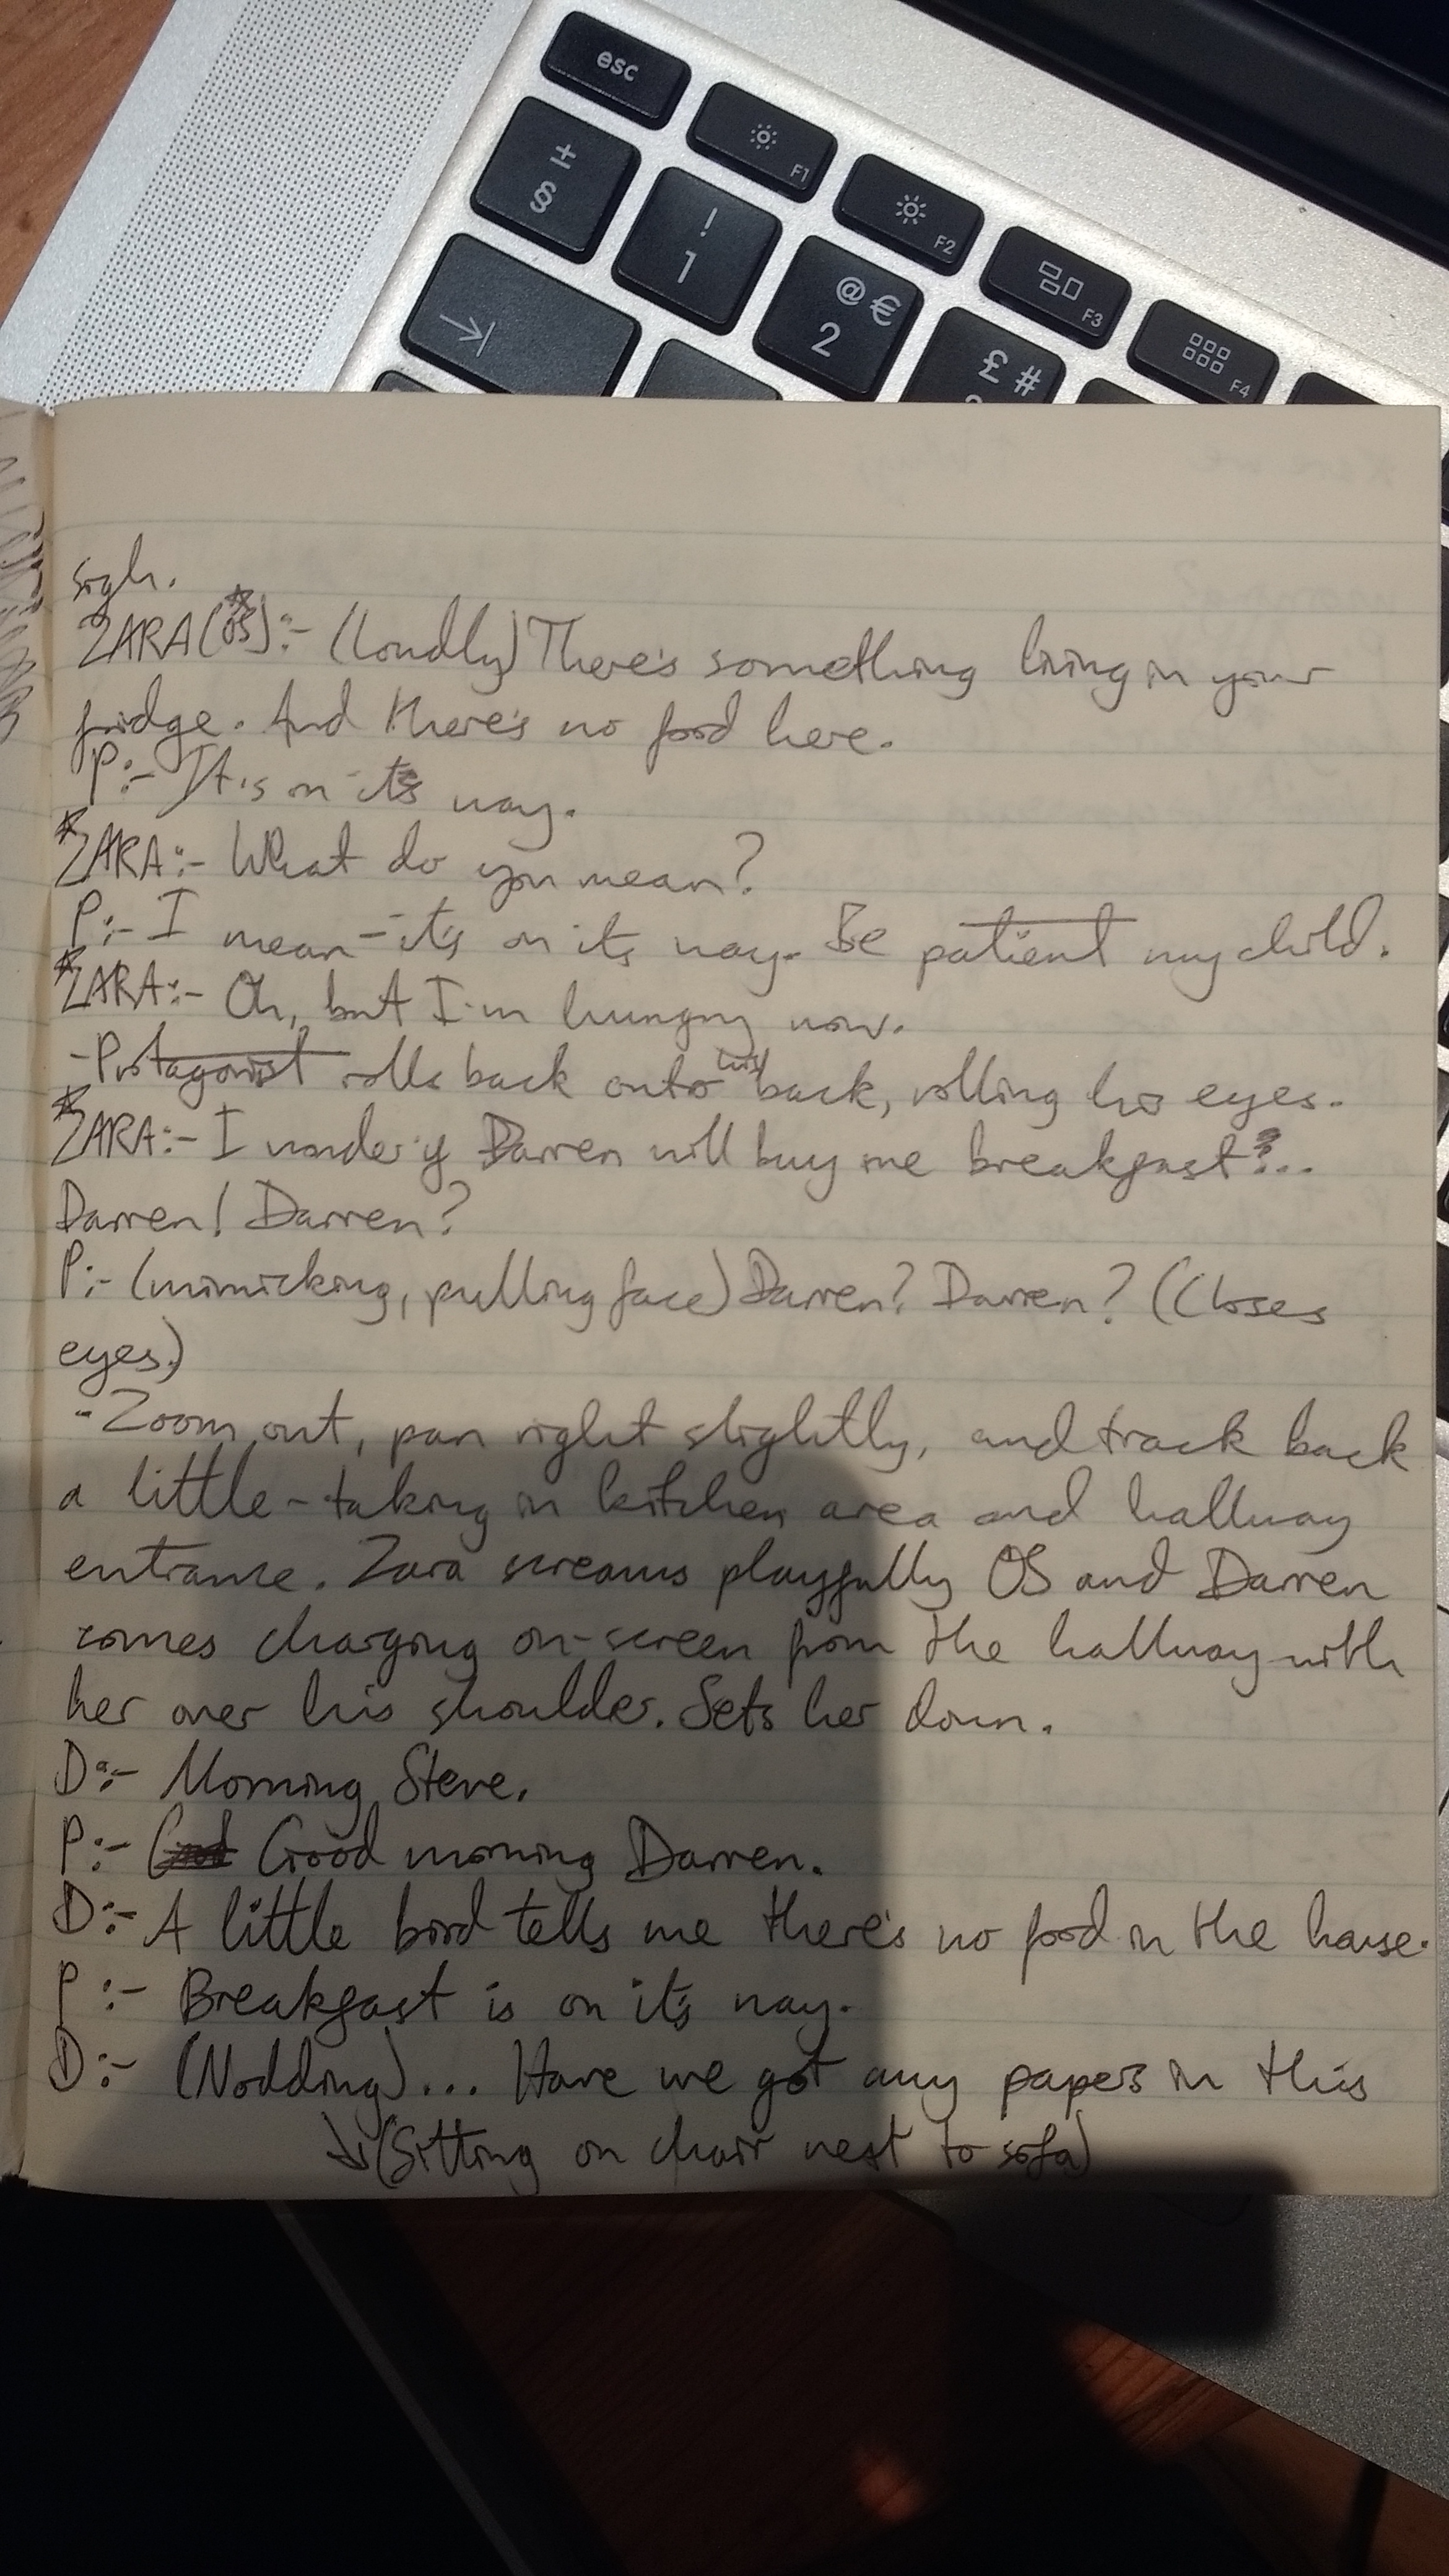 esc
±
§
!
1
F1
@ €
2
F2
£ #
F3
F4
sigh.
ZARA(OS):- (Loudly) There's something living in your
fridge. And there's no food here.
P:- It's on its way.
*ZARA:- What do you mean?
P:- I mean - it's on its way. Be patient my child.
*ZARA:- Oh, but I'm hungry now.
-Protagonist rolls back onto his back, rolling his eyes.
*ZARA:- I wonder if Darren will buy me breakfast?...
Darren! Darren?
P:- (mimicking, pulling face) Darren? Darren? (Closes
eyes.)
-Zoom out, pan right slightly, and track back
a little - taking in kitchen area and hallway
entrance. Zara screams playfully OS and Darren
comes charging on-screen from the hallway with
her over his shoulder. Sets her down.
D:- Morning Steve.
P:- Good morning Darren.
D:- A little bird tells me there's no food in the house.
P:- Breakfast is on it's way.
D:- (Nodding)... Have we got any papers in this
↓(Sitting on chair next to sofa)